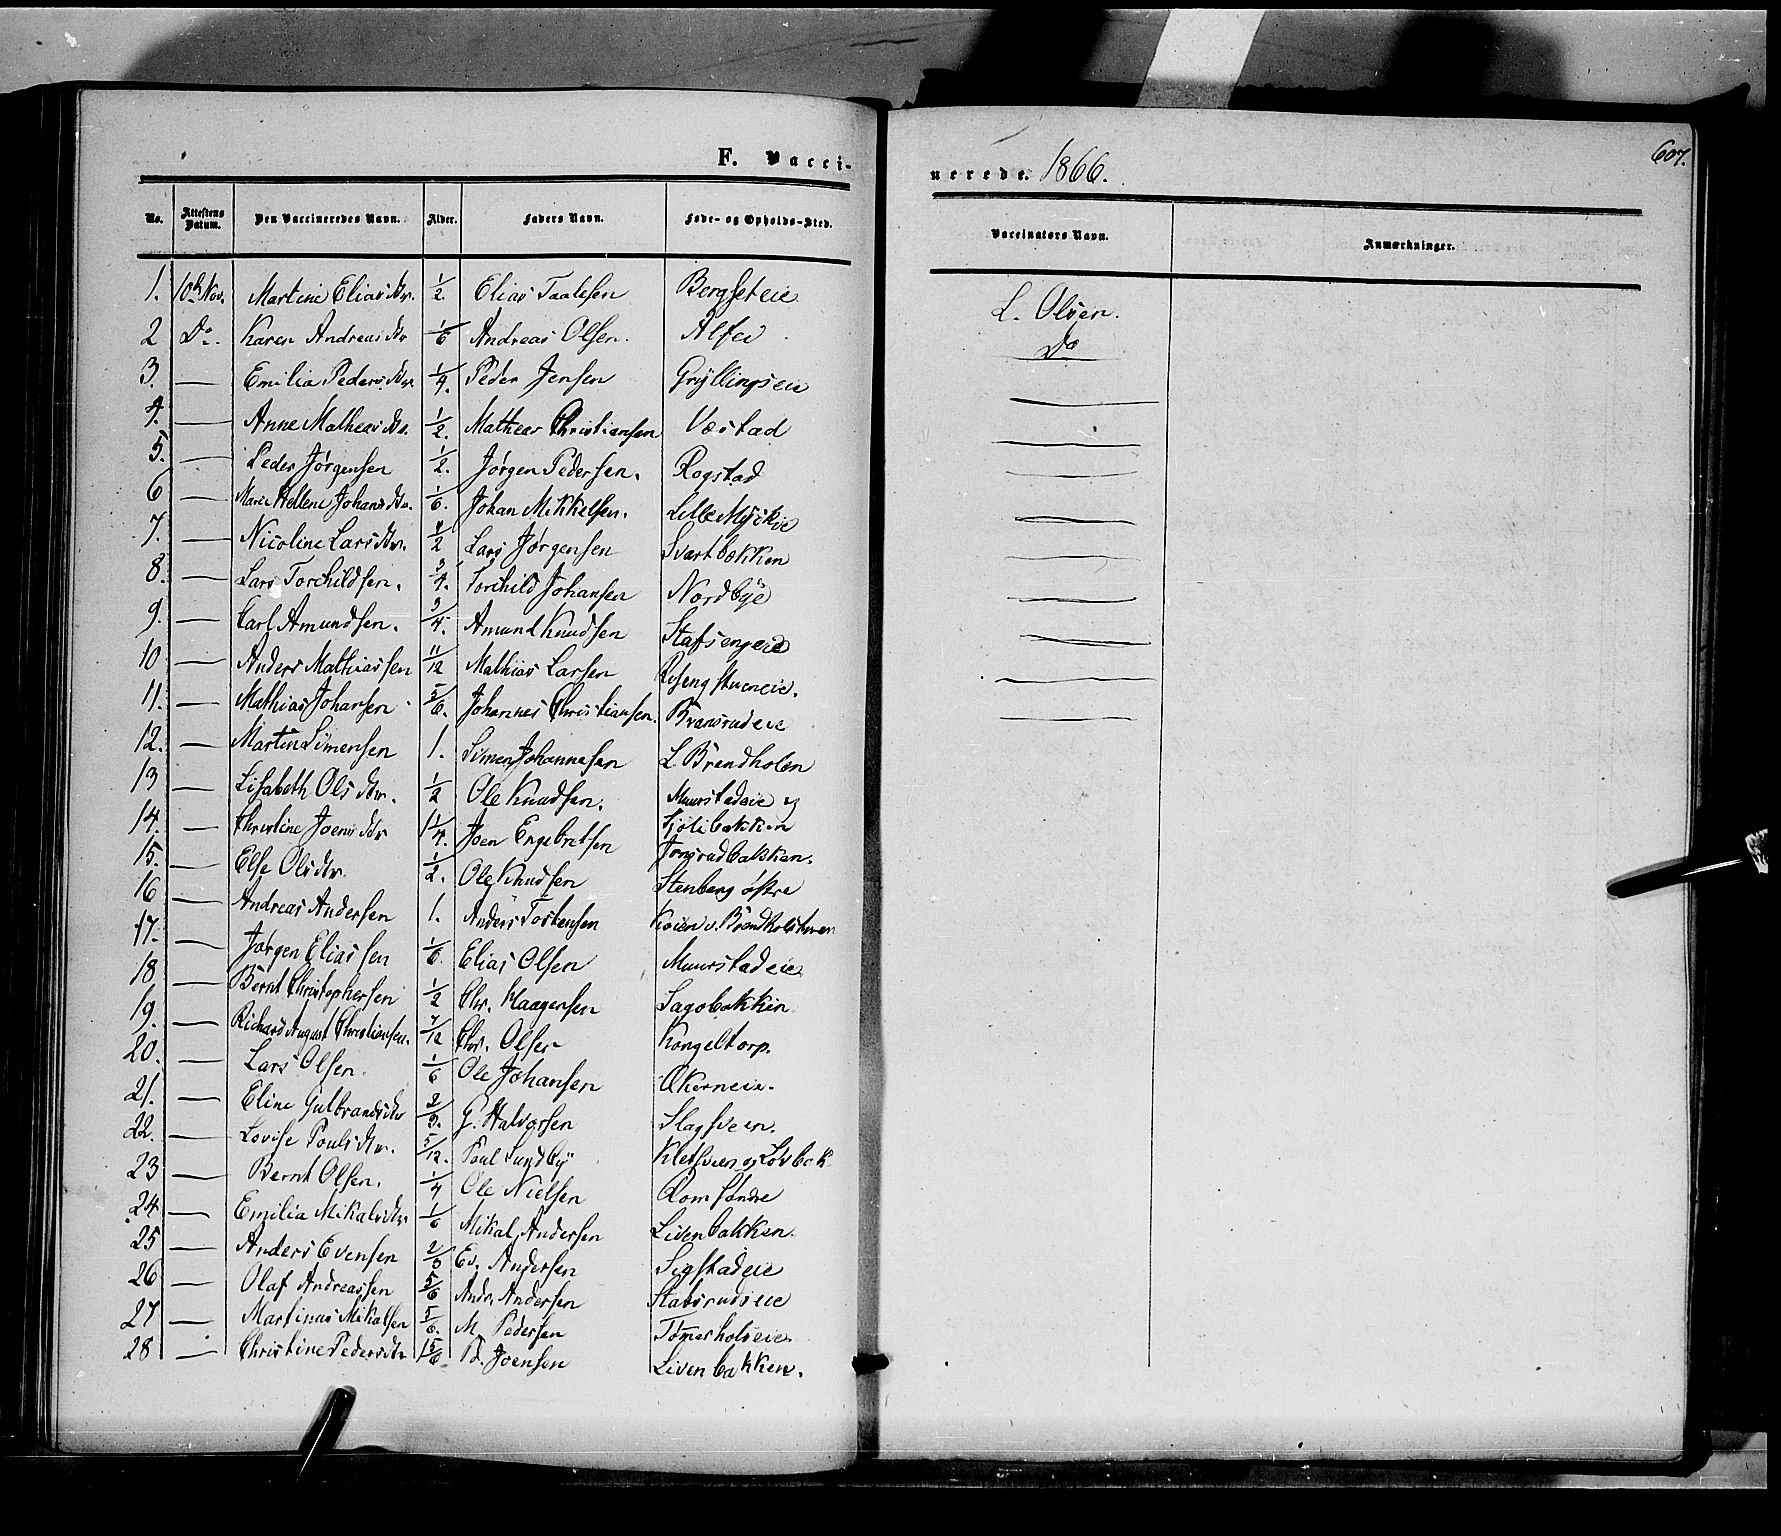 F. Vacci-
nerede. 1866.
607.
No. Attestens Datum. Den Vaccineredes Navn. Alder. Faders Navn. Føde- og Opholds-Sted. Vaccinators Navn. Anmærkninger.
1. 10de Nov. Martine Eliasdtr. 1/2. Elias Taalesen Bergseteie L. Olsen.
2 Do. Karen Andreasdtr 1/6 Andreas Olsen. Alfei Do
3. — Emilia Pedersdtr. 1/4. Peder Jensen Gryllingseie —
4. — Anne Matheasdtr. 1/2. Matheas Christiansen Vestad —
5. — Peder Jørgensen 1/2. Jørgen Pedersen. Rogstad —
6 — Marie Hellene Johansdtr. 1/6. Johan Mikkelsen. Lille —
7. — Nicoline Larsdtr. 1/2 Lars Jørgensen Svartbekken —
8. — Lars Torchildsen. 3/4. Torchild Johansen Nordbye —
9. — Carl Amundsen. 3/4. Amund Knudsen Stafsengeie —
10 — Anders Mathiassen 11/12 Mathias Larsen —
11. — Mathias Johansen 5/6. Johannes Christiansen. —
12. — Martin Simensen 1. Simen Johannesen L. Brendholen
13 — Lisabeth Olsdtr. 1/2 Ole Knudsen. Muurstadeie og
Kjølibakken
14. — Christine Joensdtr 1 1/4. Joen Engebretsen Jonsrudbakken.
15. — Else Olsdtr. 1/2. Ole Knudsen Stenberg østre
16 — Andreas Andersen 1. Anders Tostensen
17. — Jørgen Eliassen 1/6. Elias Olsen Muurstadeie
18 — Bernt Christophersen 1/2 Chr. Haagensen Sagobakken
19. — Richard August Christiansen. 7/12 Chr. Olsen Kongeltorp.
20. — Lars Olsen. 1/6 Ole Johansen Økerneie.
21. — Eline Gulbrandsdtr 2/3. G. Halvorsen Slagsveen.
22. — Lovise Poulsdtr. 5/12. Poul Sundby Kletsveen og
23 — Bernt Olsen. 1/4 Ole Nielsen Rom søndre
24. — Emilia Mikalsdtr. 1/6 Mikal Andersen Livenbakken.
25 — Anders Evensen 2/3 Ev. Andersen Sigstadeie
26 — Olaf Andreassen 5/6 Andr. Andersen Stabsrudseie
27 — Martinus Mikalsen 5/6. M. Pedersen Tømerholseie
28 — Christine Pedersdtr 1 5/6 Pd. Joensen Livenbakken.